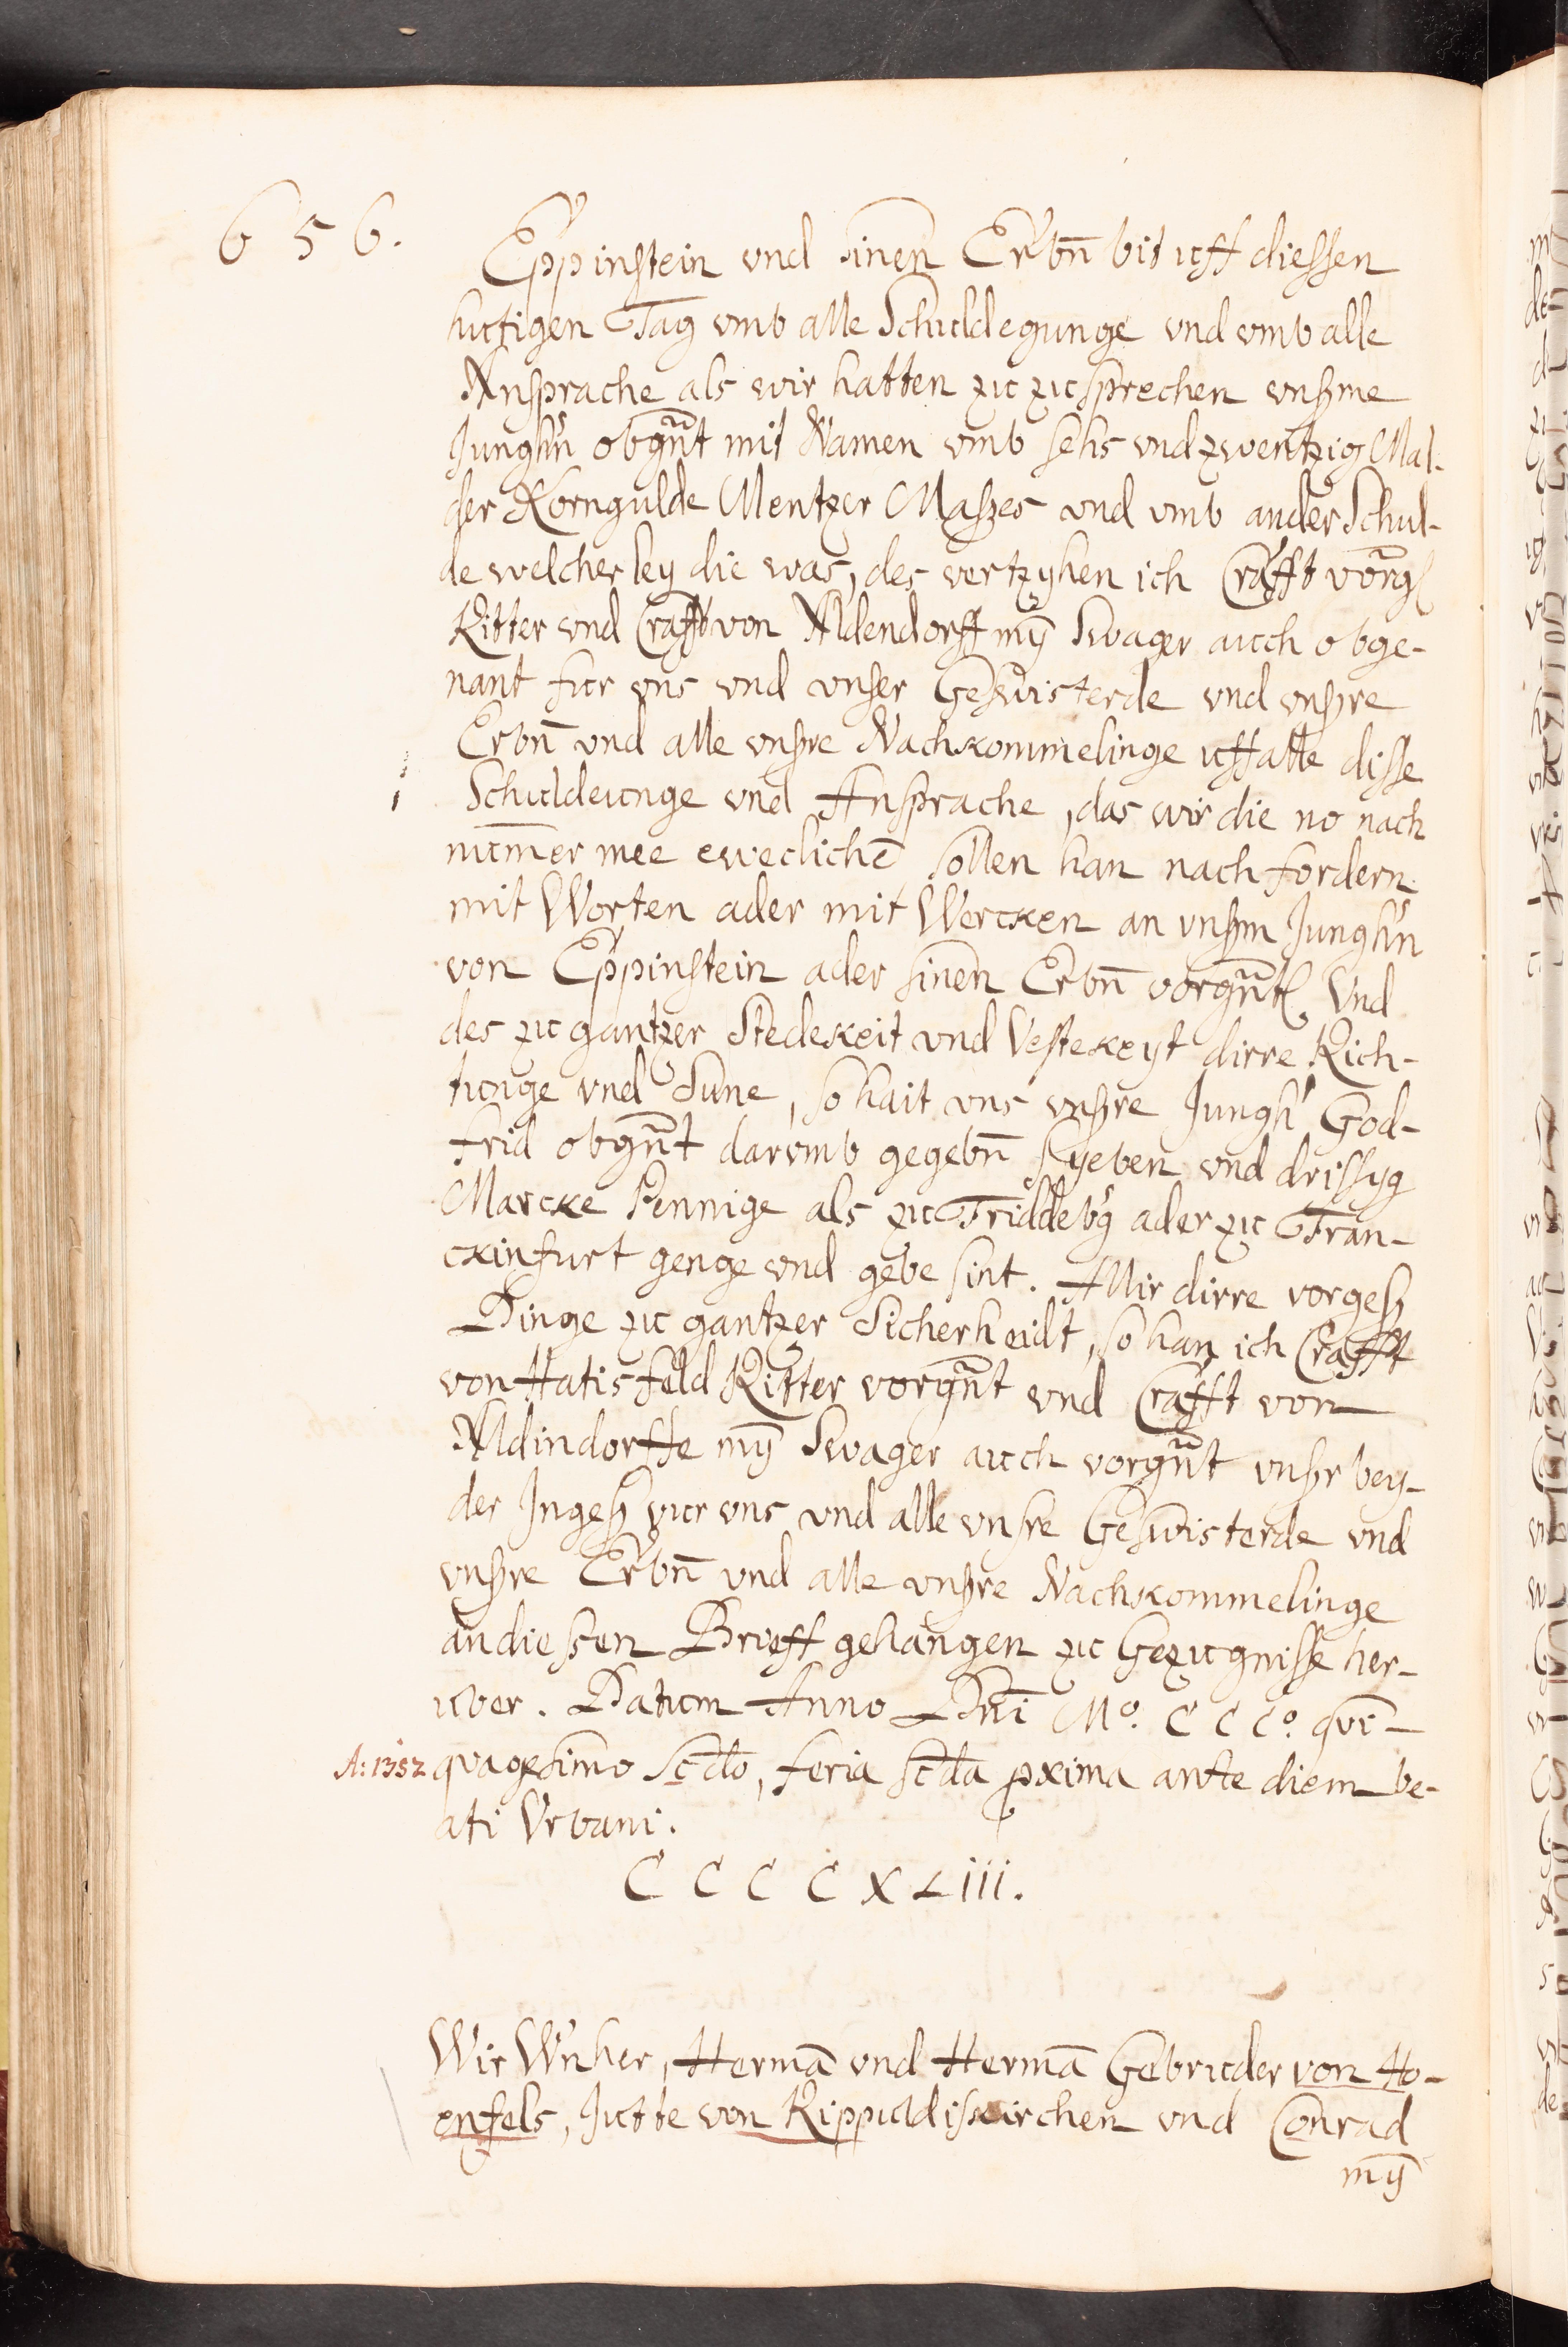 656.
Eppinstein vnd sinen Erbn̄ bis uff diessen
hutigen Tag vmb alle Schuldegunge vnd vmb alle
Ansprache als wir hatten zu zusprechen vnßme
Junghn̄ obgnt̄ mit Namen vmb sehs vnd zwentzig Mal-
der Korngulde Mentzer Maßes vnd vmb ander Schul-
de welcherley die was, des vertzyhen ich Crafft vorg
Ritter vnd Crafft von Aldendorff mȳ Swager auch obge-
nant fur vns vnd vnser Geswisterde vnd vnßre
Erbn̄ vnd alle vnßre Nachkommelinge uff alle disse
Schuldeunge vnd Ansprache, das wir die no nach
num̄er mee eweclichē sollen han nach fordern
mit Worten ader mit Wercken an vnßm Junghn̄
von Eppinstein ader sinen Erbn̄ vorgnt̄ Vnd
des zu gantzer Stedekeit vnd Vestekeyt dirre Rich-
tunge vnd Sune, so hait vns vnßre Jungh' God-
frid obgnt̄ darvmb gegebn̄ syeben vnd drissyg
Marcke Pennige als zu Friddebg ader zu Fran-
ckinfurt genge vnd gebe sint. Allir dirre vorgeß
Dinge zu gantzer Sicherheidt, so han ich Crafft
von Hatisfeld Ritter vorgnt̄ vnd Crafft von
Aldindorffe mȳ Swager auch vorgnt̄ vnßr bey-
der Ingeß vur vns vnd alle vnsre Geswisterde vnd
vnßre Erbn̄ vnd alle vnßre Nachkommelinge
an dießen Brieff gehangen zu Gezugnisse her-
uber. Datum Anno Dn̄i Mº. CCCº. qvī-
A: 1352 qvagesimo sc̄do, feria sc̄da pxima ante diem be-
ati Vrbani.
CCCCXLIII.
Wir Wn̄her, Hermā vnd Hermā Gebruder von Ho-
enfels, Jutte von Rippuldiskirchen vnd Conrad
mȳ